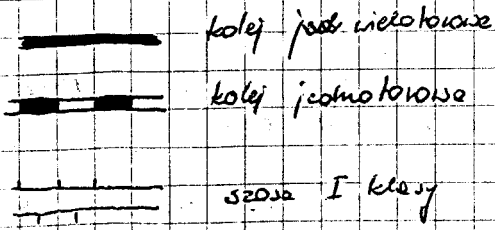 kolej wielotorowa
kolej jednotorowa
szosa I klasy